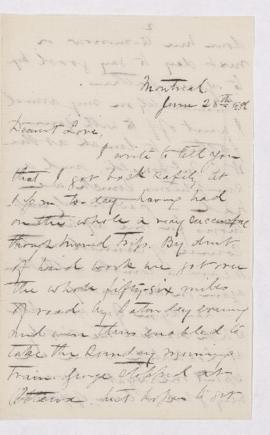 2
Montreal
June 28th
Dearest Love,
I write to tell you
that I got back safely at
1 p.m to-day having had
on the whole a very successful
though hurried trip. By dint
of hard work we got over
the whole fifty-six miles
of road by Saturday evening
and were thus enabled to
take the Sunday morning
train
stopped at
Ottawa just to